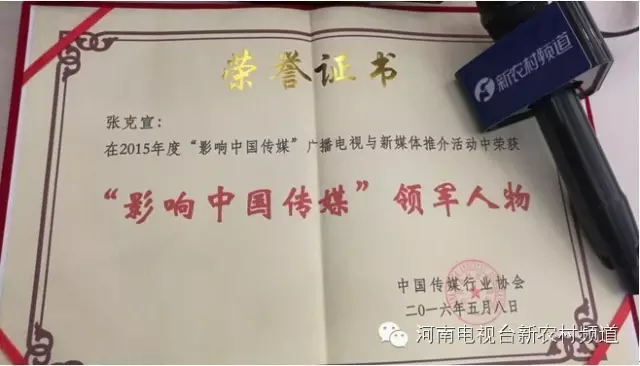 荣誉证书
新农村频道
张克宣：
在2015年度“影响中国传媒”广播电视与新媒体推介活动中荣获
“影响中国传媒”领军人物
中国传媒行业协会
二〇一六年五月八日
河南电视台新农村频道